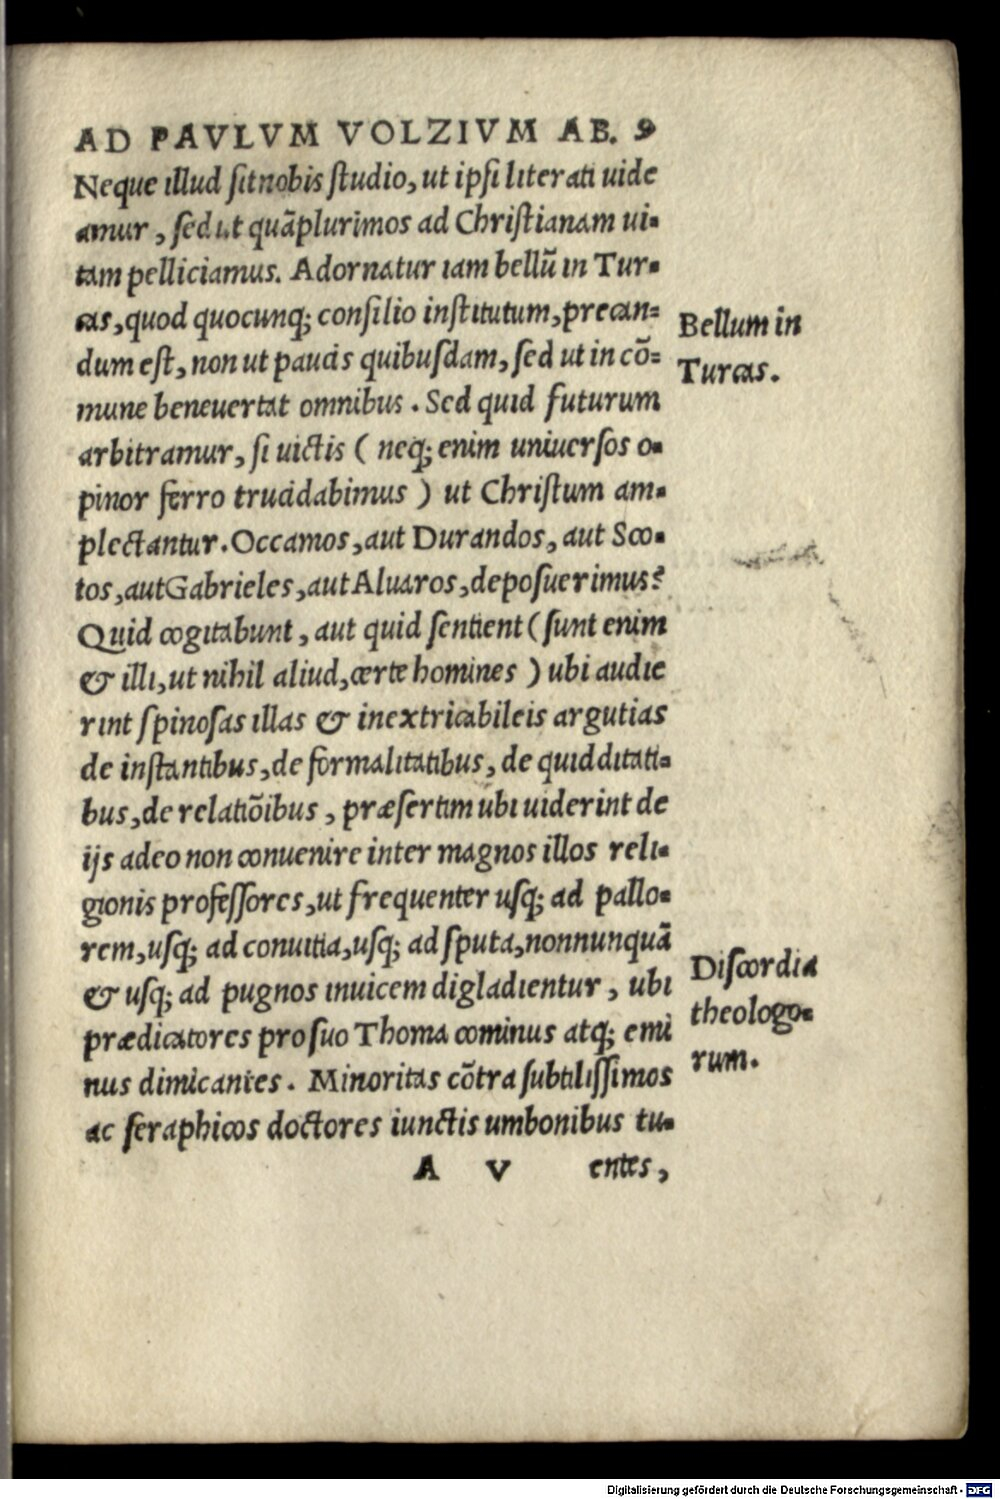 AD PAVLVM VOLZIVM AB. 9
Neque illud sit nobis studio, ut ipsi literati uide
amur, sed ut quãplurimos ad Christianam ui-
tam pelliciamus. Adornatur iam bellũ in Tur-
cas, quod quocunq; consilio institutum, precan-
dum est, non ut paucis quibusdam, sed ut in cõ-
mune beneuertat omnibus. Sed quid futurum
arbitramur, si uictis ( neq; enim uniuersos o-
pinor ferro trucidabimus ) ut Christum am-
plectantur. Occamos, aut Durandos, aut Sco-
tos, aut Gabrieles, aut Aluaros, deposuerimus?
Quid cogitabunt, aut quid sentient ( sunt enim
& illi, ut nihil aliud, certe homines ) ubi audie
rint spinosas illas & inextricabileis argutias
de instantibus, de formalitatibus, de quidditati-
bus, de relatiõibus, præsertim ubi uiderint de
ijs adeo non conuenire inter magnos illos reli-
gionis professores, ut frequenter usq; ad pallo-
rem, usq; ad conuitia, usq; ad sputa, nonnunquã
& usq; ad pugnos inuicem digladientur, ubi
prædicatores pro suo Thoma cominus atq; emi
nus dimicantes. Minoritas cõtra subtilissimos
ac seraphicos doctores iunctis umbonibus tu-
A V entes,
Bellum in
Turcas.
Discordia
theologo-
rum.
Digitalisierung gefördert durch die Deutsche Forschungsgemeinschaft - DFG